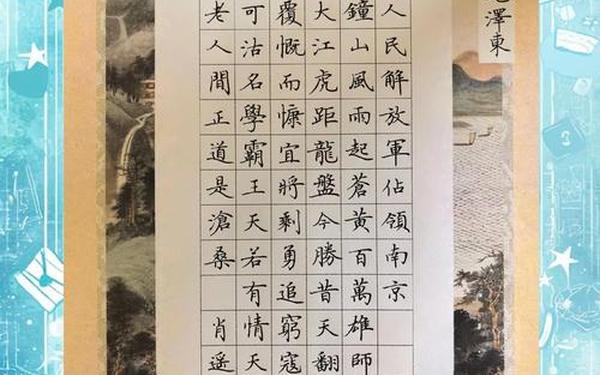 澤東
人民解放軍佔領南京
鐘山風雨起蒼黃百萬雄師
大江虎距龍盤今勝昔天翻
覆慨而慷宜將剩勇追窮寇
可沽名學霸王天若有情天
老人間正道是滄桑 肖遥